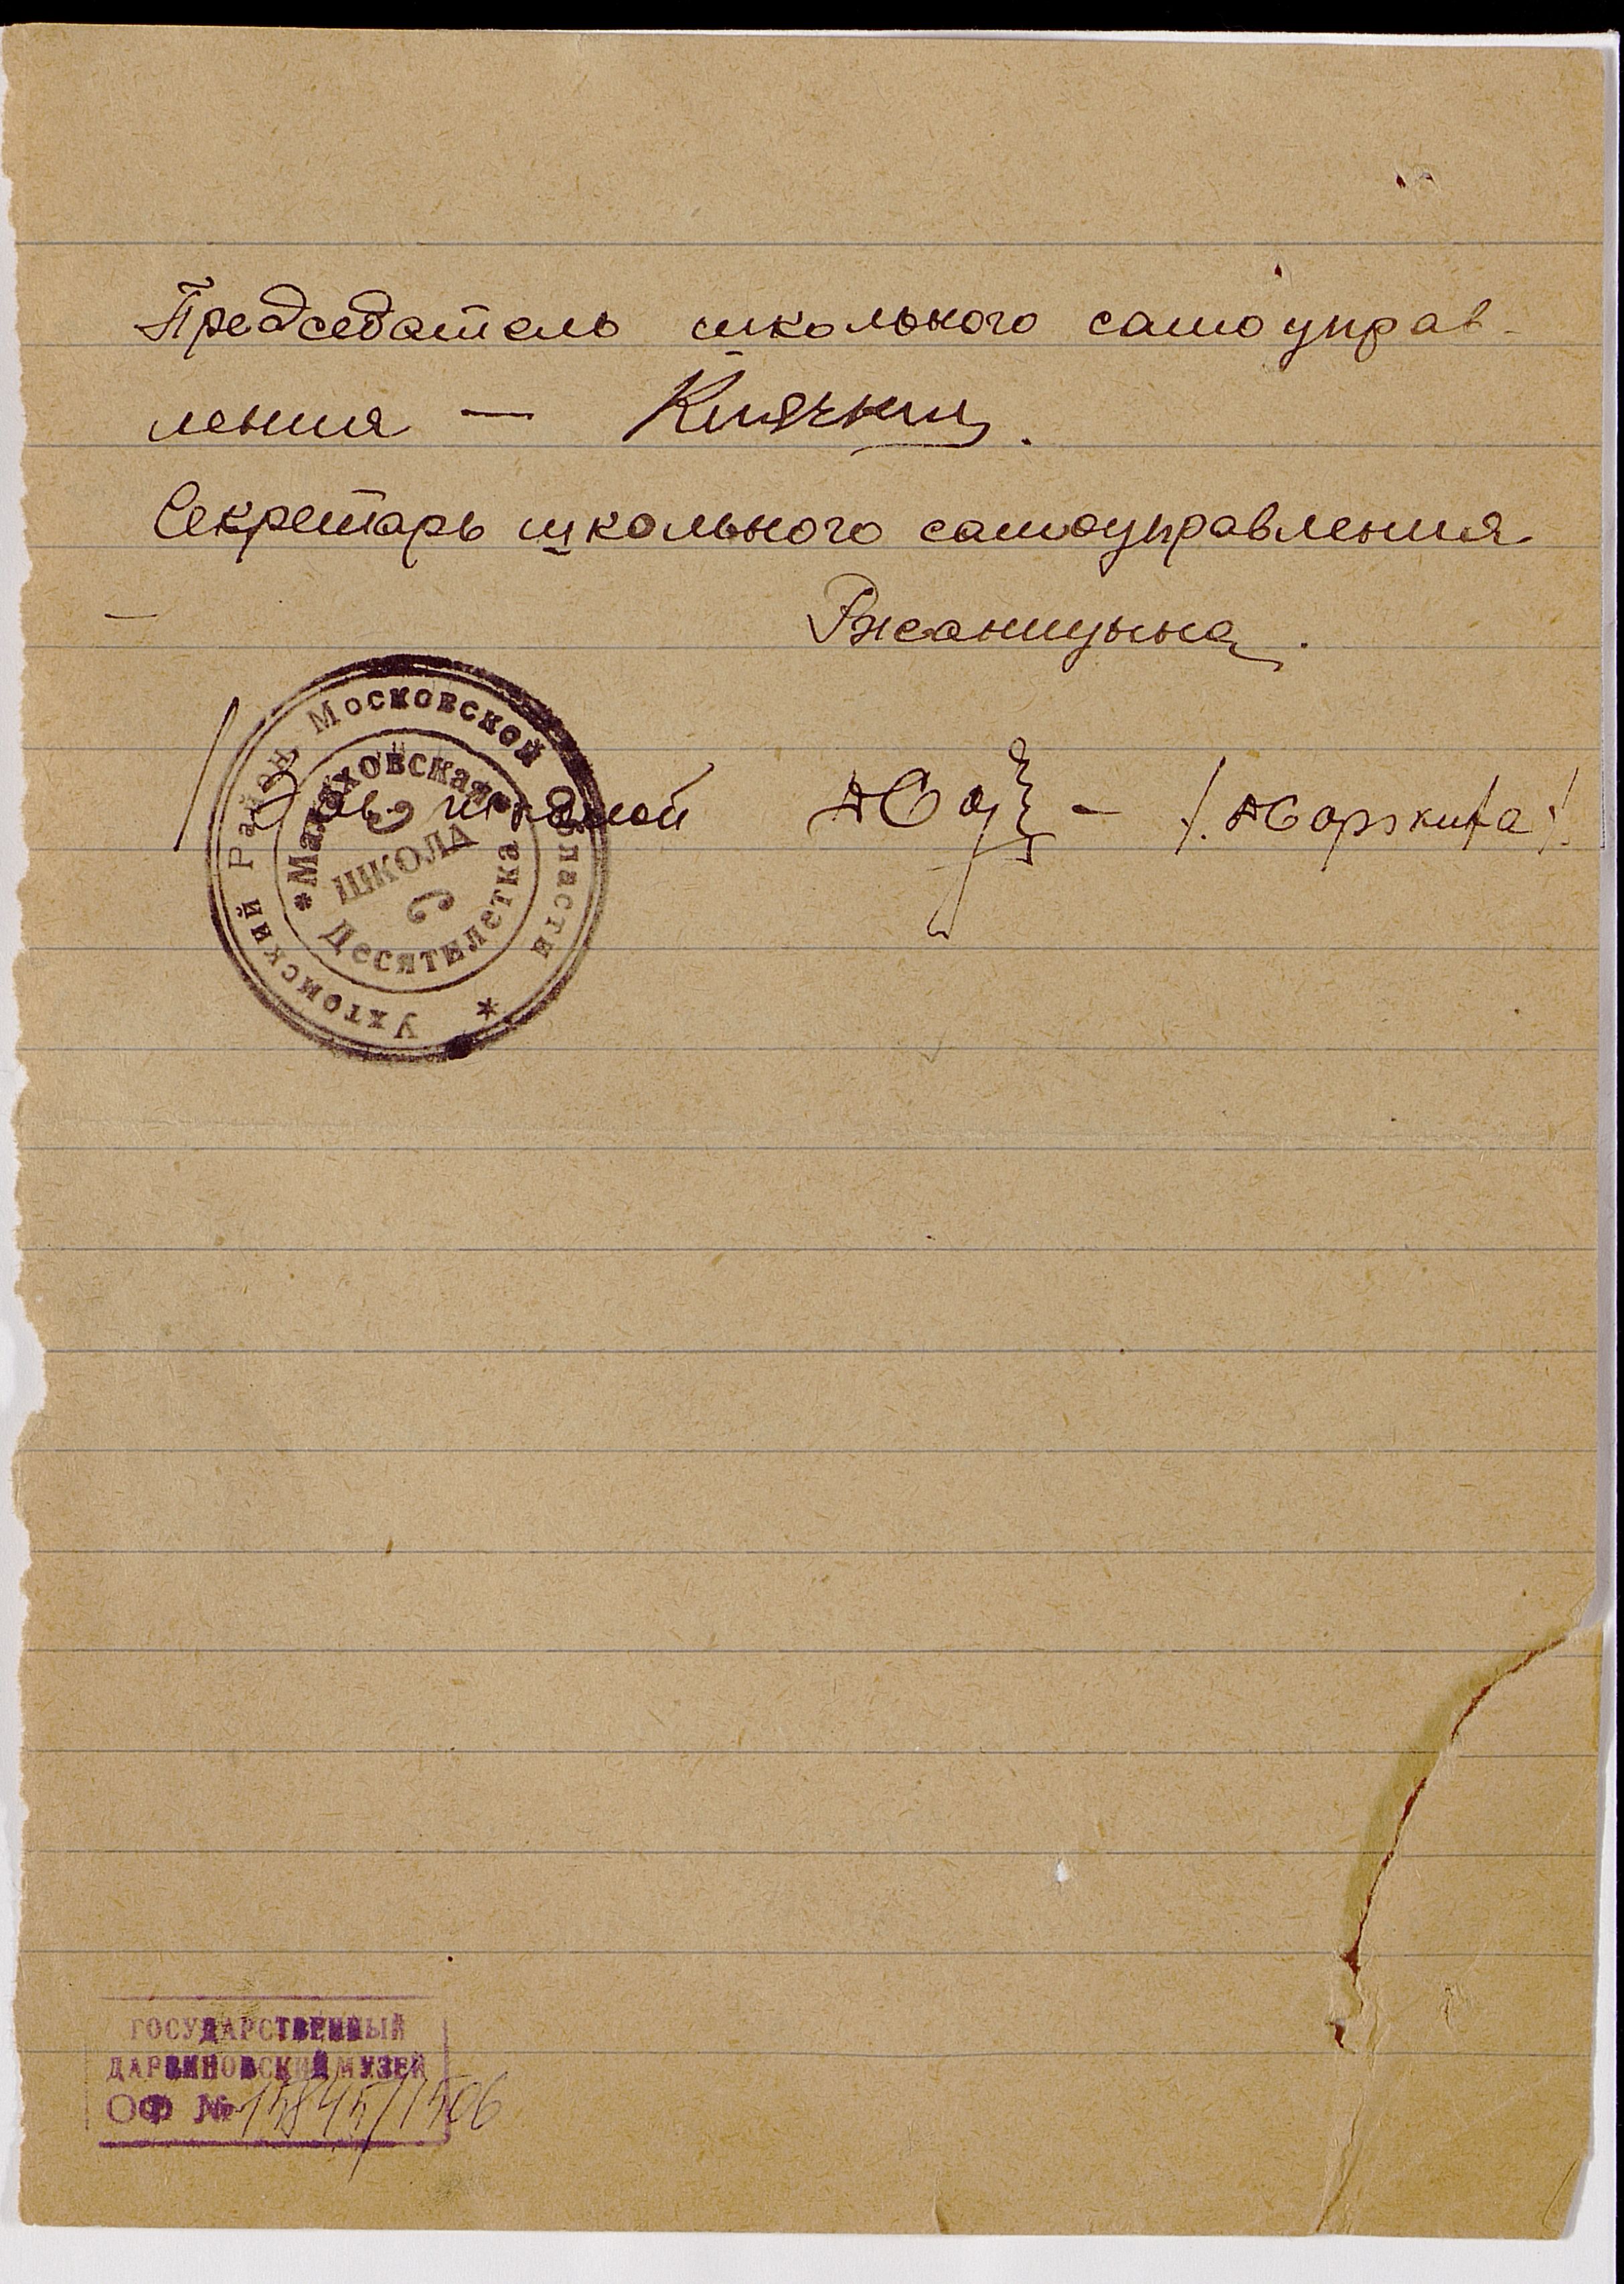 Председатель школьного самоуправ-
ления —
Секретарь школьного самоуправления
— Ржаницына.
Зав. школой
Ухтомский Район Московской Области *
* Малаховская * Десятилетка
ШКОЛА
ГОСУДАРСТВЕННЫЙ
ДАРВИНОВСКИЙ МУЗЕЙ
ОФ № 15845/1506